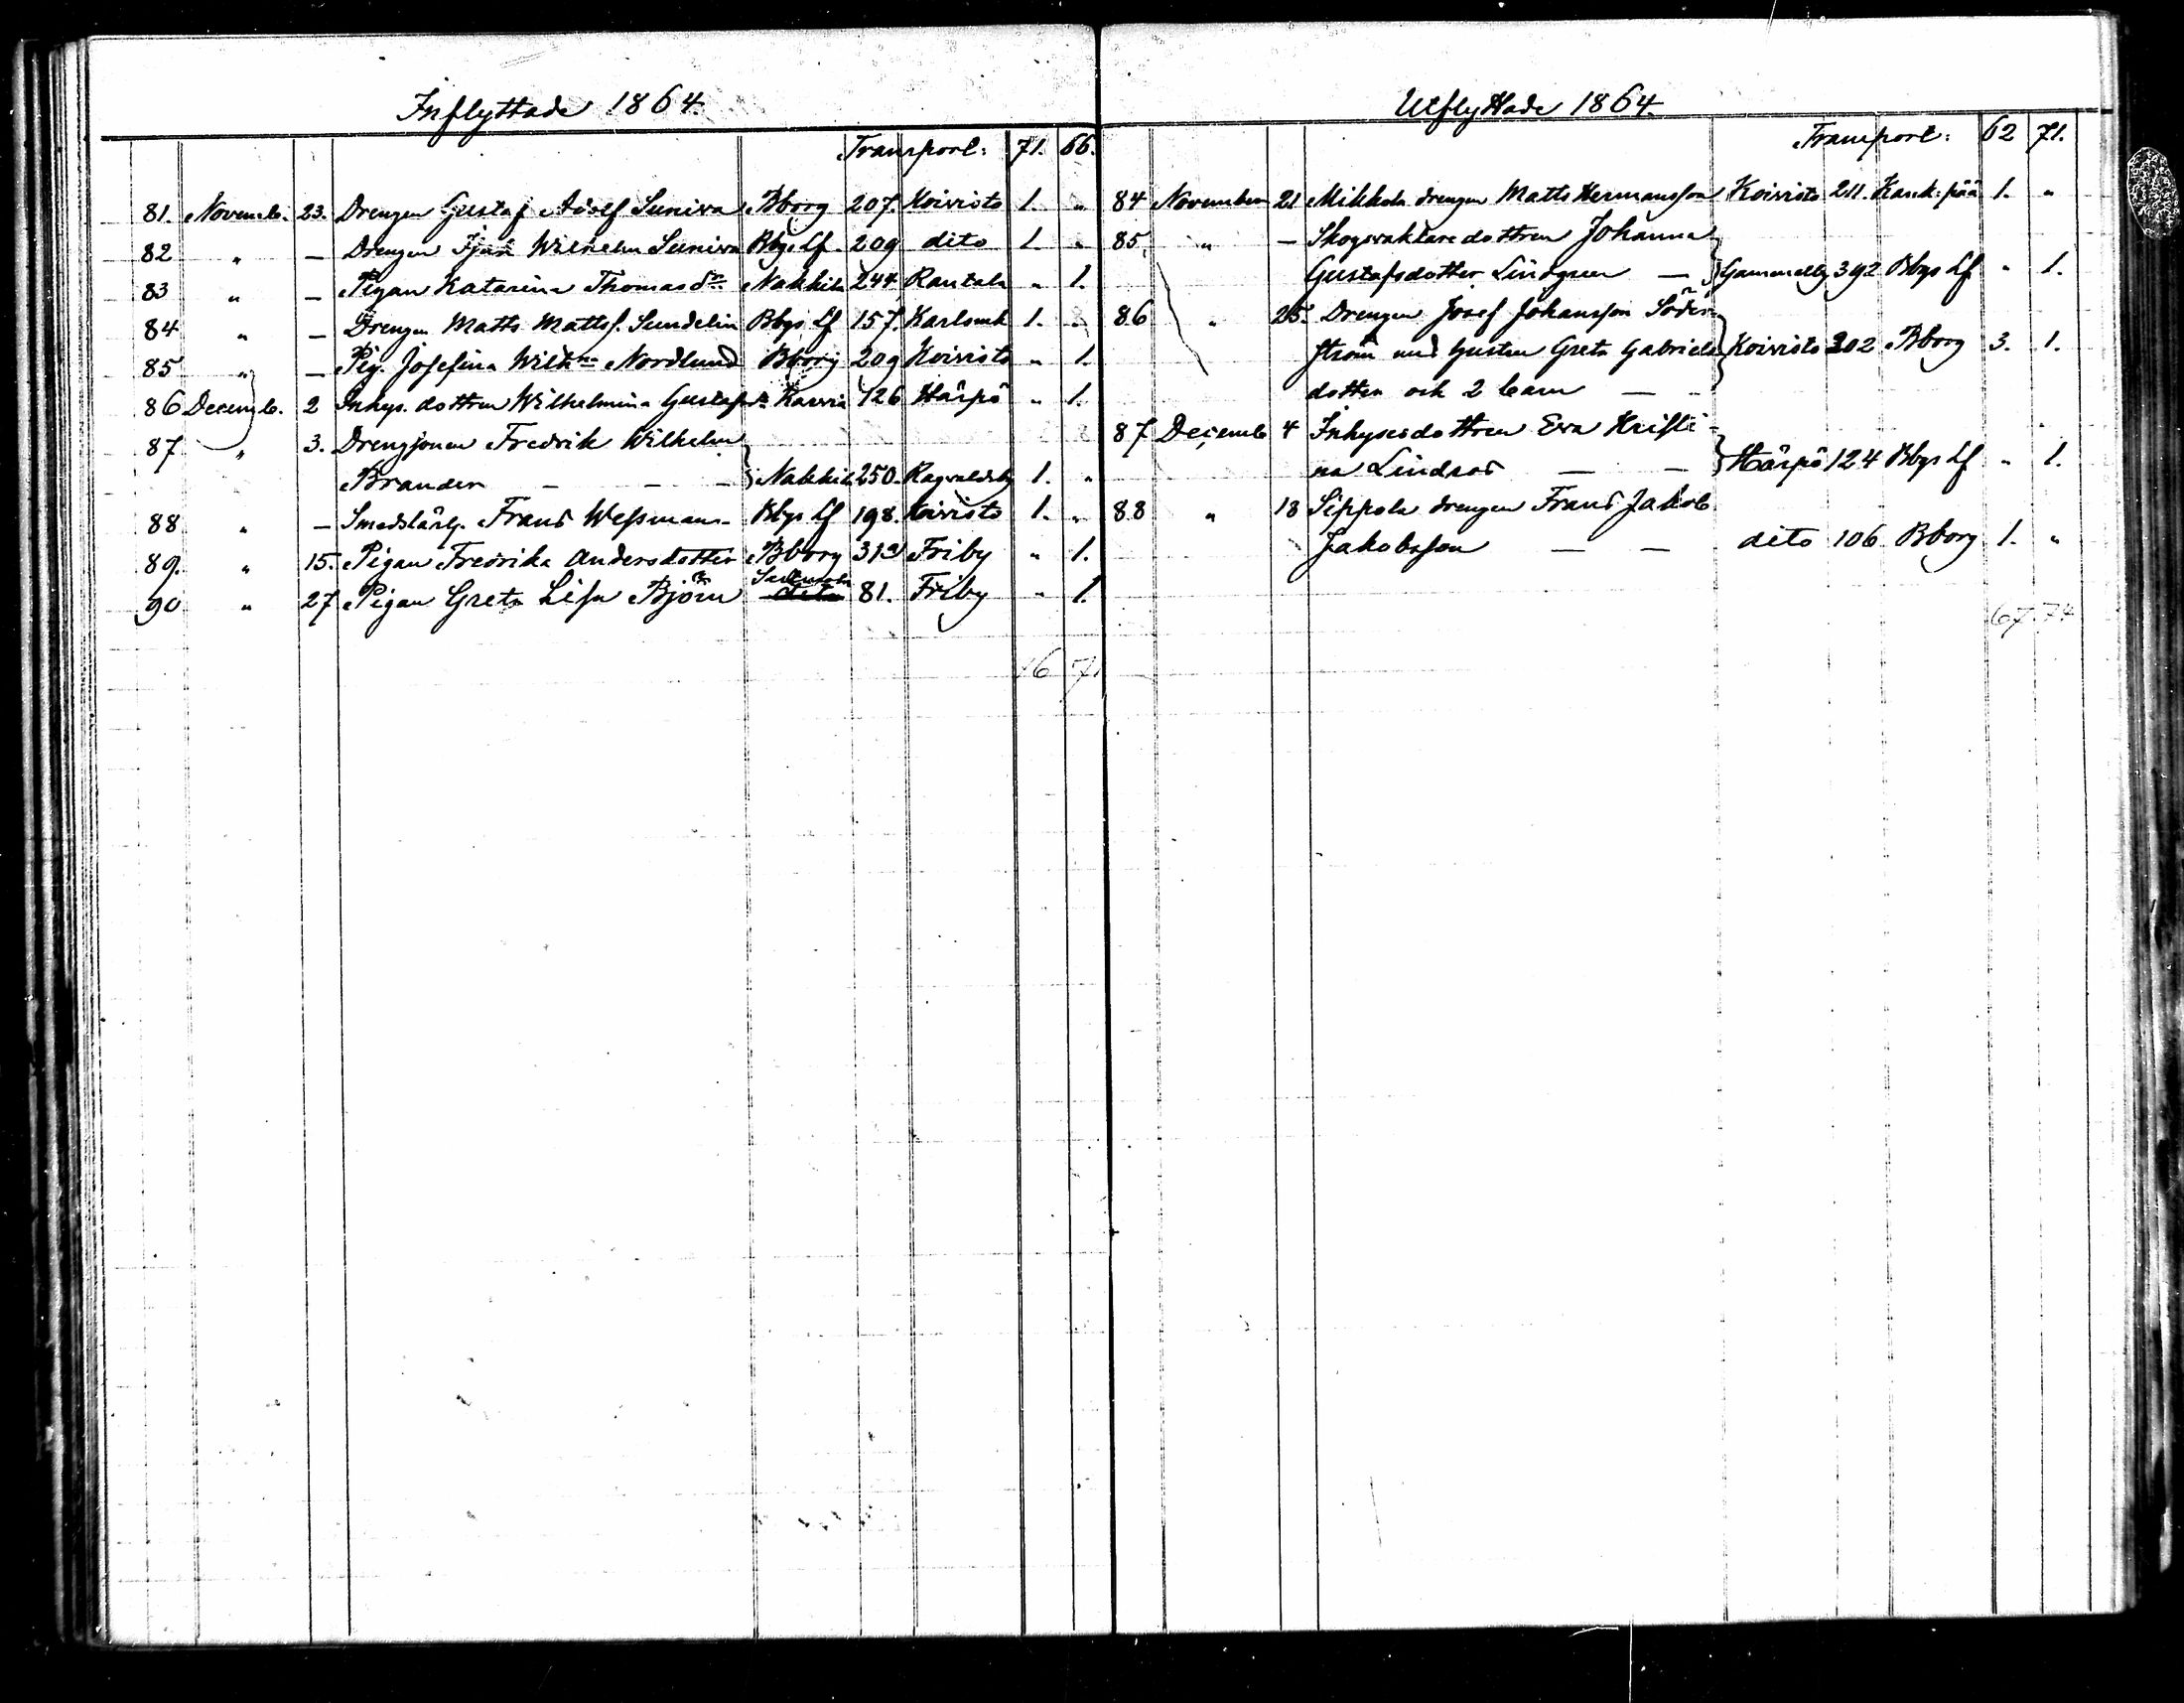 Inflyttade 1864.
Transport: 71. 66.
81. Novemb. 23. Drengen Gustaf Adolf Suniva Bborg 207. Koivisto 1. "
82 " — Drengen Wilhelm Suniva Bbgs lf 209 dito 1. "
83 " — Pigan Katarina Thomasdr Nakkila 244 Rantala " 1.
84 " — Drengen Matts Mattss. Sundelin Bbgs lf 157. Karlsmk 1. "
85 " — Pig. Josefina Wilhna Nordlund Bborg 209 Koivisto " 1.
86 Decemb. 2 Inhys. dottren Wilhelmina Gustafsdr 126 Härpö " 1.
87 " 3. Drengsonen Fredrik Wilhelm
Brander — — — Nakkila 250. Ragvaldsby 1. "
88 " — Smedslärl. Frans Wessman — Bbgs lf 198. Koivisto 1. "
89. " 15. Pigan Fredrika Andersdotter Bborg 313 Friby " 1.
90 " 27 Pigan Greta Lisa Björn dito 81. Friby " 1.
Utflyttade 1864.
Transport: 62 71.
84 November 21 Mikkola drengen Matts Hermansson Koivisto 211. Kank:pää 1. "
85 " — Skogvaktaredottren Johanna
Gustafsdotter Lindgren — Gammelby 392 Bbgs lf " 1.
86 " 25. Drengen Josef Johansson Söder-
ström med hustru Greta Gabriels Koivisto 202 Bborg 3. 1.
dotter och 2 barn — —
87 Decemb 4 Inhysesdottren Eva Kristi-
na Lindros — — Härpö 124 Bbgs lf " 1.
88 " 18 Sippola drengen Frans Jakob
Jakobsson — — dito 106 Bborg 1. "
67. 74